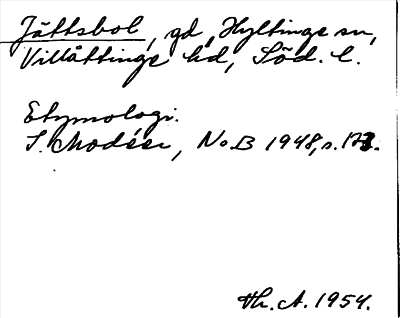 Jättsbol, gd, Hyltinge sn,
Villåttinge hd, Söd. l.
Etymologi.
I. Modéer, NoB 1948, s.
Th. A. 1954.